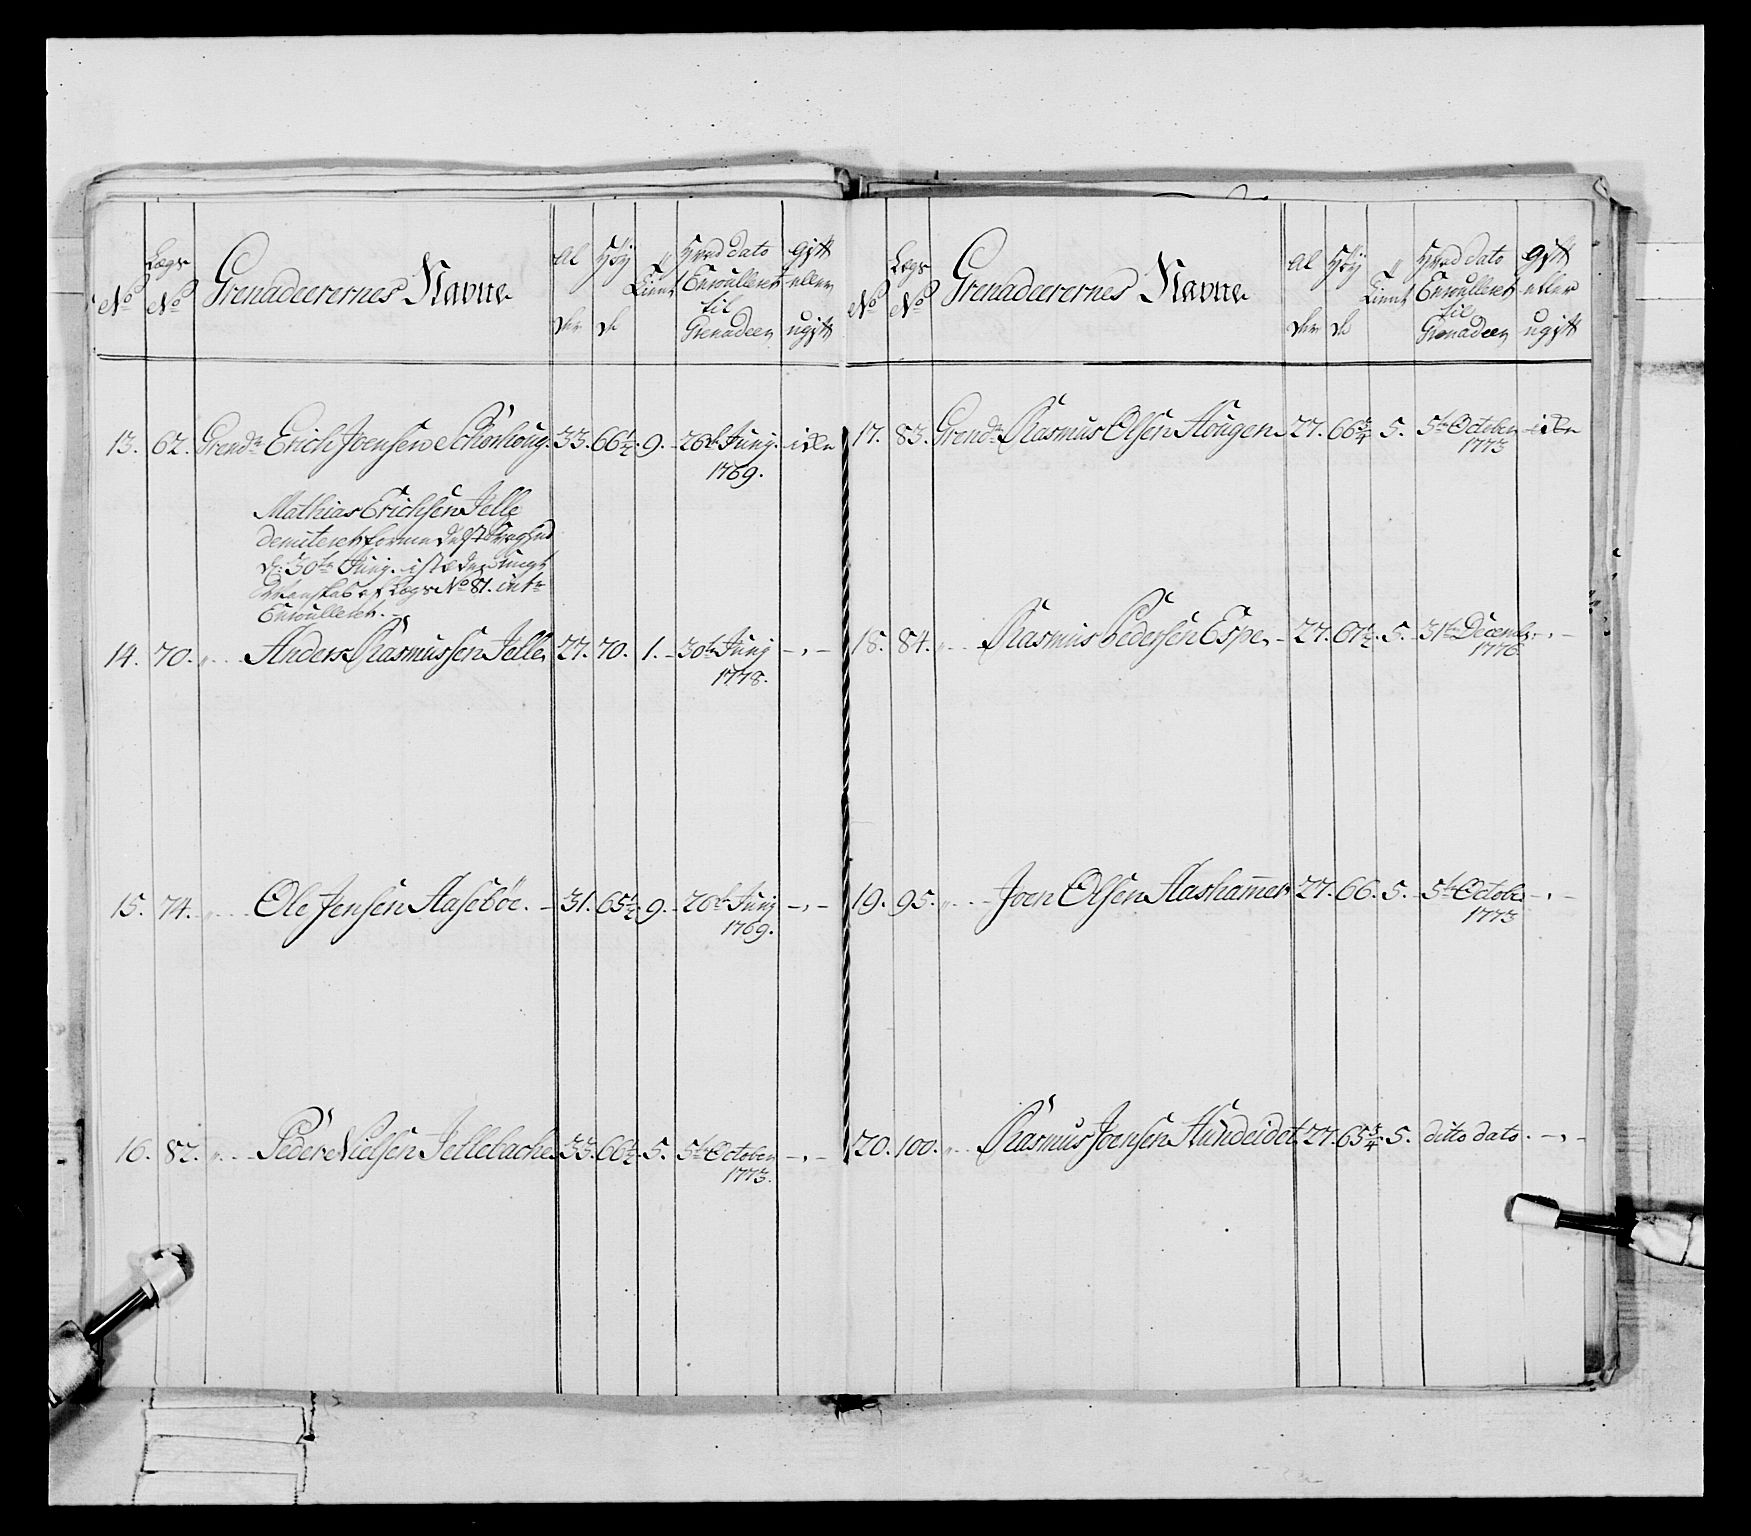 No
Lægs No
Grenadeerernes Navne
Al der
Höy de
Tient
Hvad dato Enroulleret til Grenadeer
gift eller ugift
13. 62. Grendr Erich Joensen 33. 66½. 9. 26de Junij 1769.
Mathias Erichsen Jelle
30te Junij
Lægs No 81.
Enroulleret.
14. 70. " Anders Rasmussen Jelle 27. 70. 1. 30te Junij 1778. - " -
15. 74. " Ole Jensen Aaseböe. 31. 65½. 9. 26de Junij 1769. - " -
16. 82. " Peder Nielsen Jellebache 33. 66½. 5. 5te October 1773. - " -
No
Lægs No
Grenadeerernes Navne
Al der
Höy de
Tient
Hvad dato Enroulleret til Grenadeer
gift eller ugift
17. 83. Grendr Rasmus Olsen Hougen 27. 66¾. 5. 5te October 1773
18. 84. " Rasmus Pedersen Espe 27. 67½. 5. 31te Decembr 1776. - " -
19. 95. " Joen Olsen Aashammer 27. 66. 5. 5te Octobr 1773 - " -
20. 100. " Rasmus Joensen Hundeidet 27. 65¾. 5. ditto dato. - " -